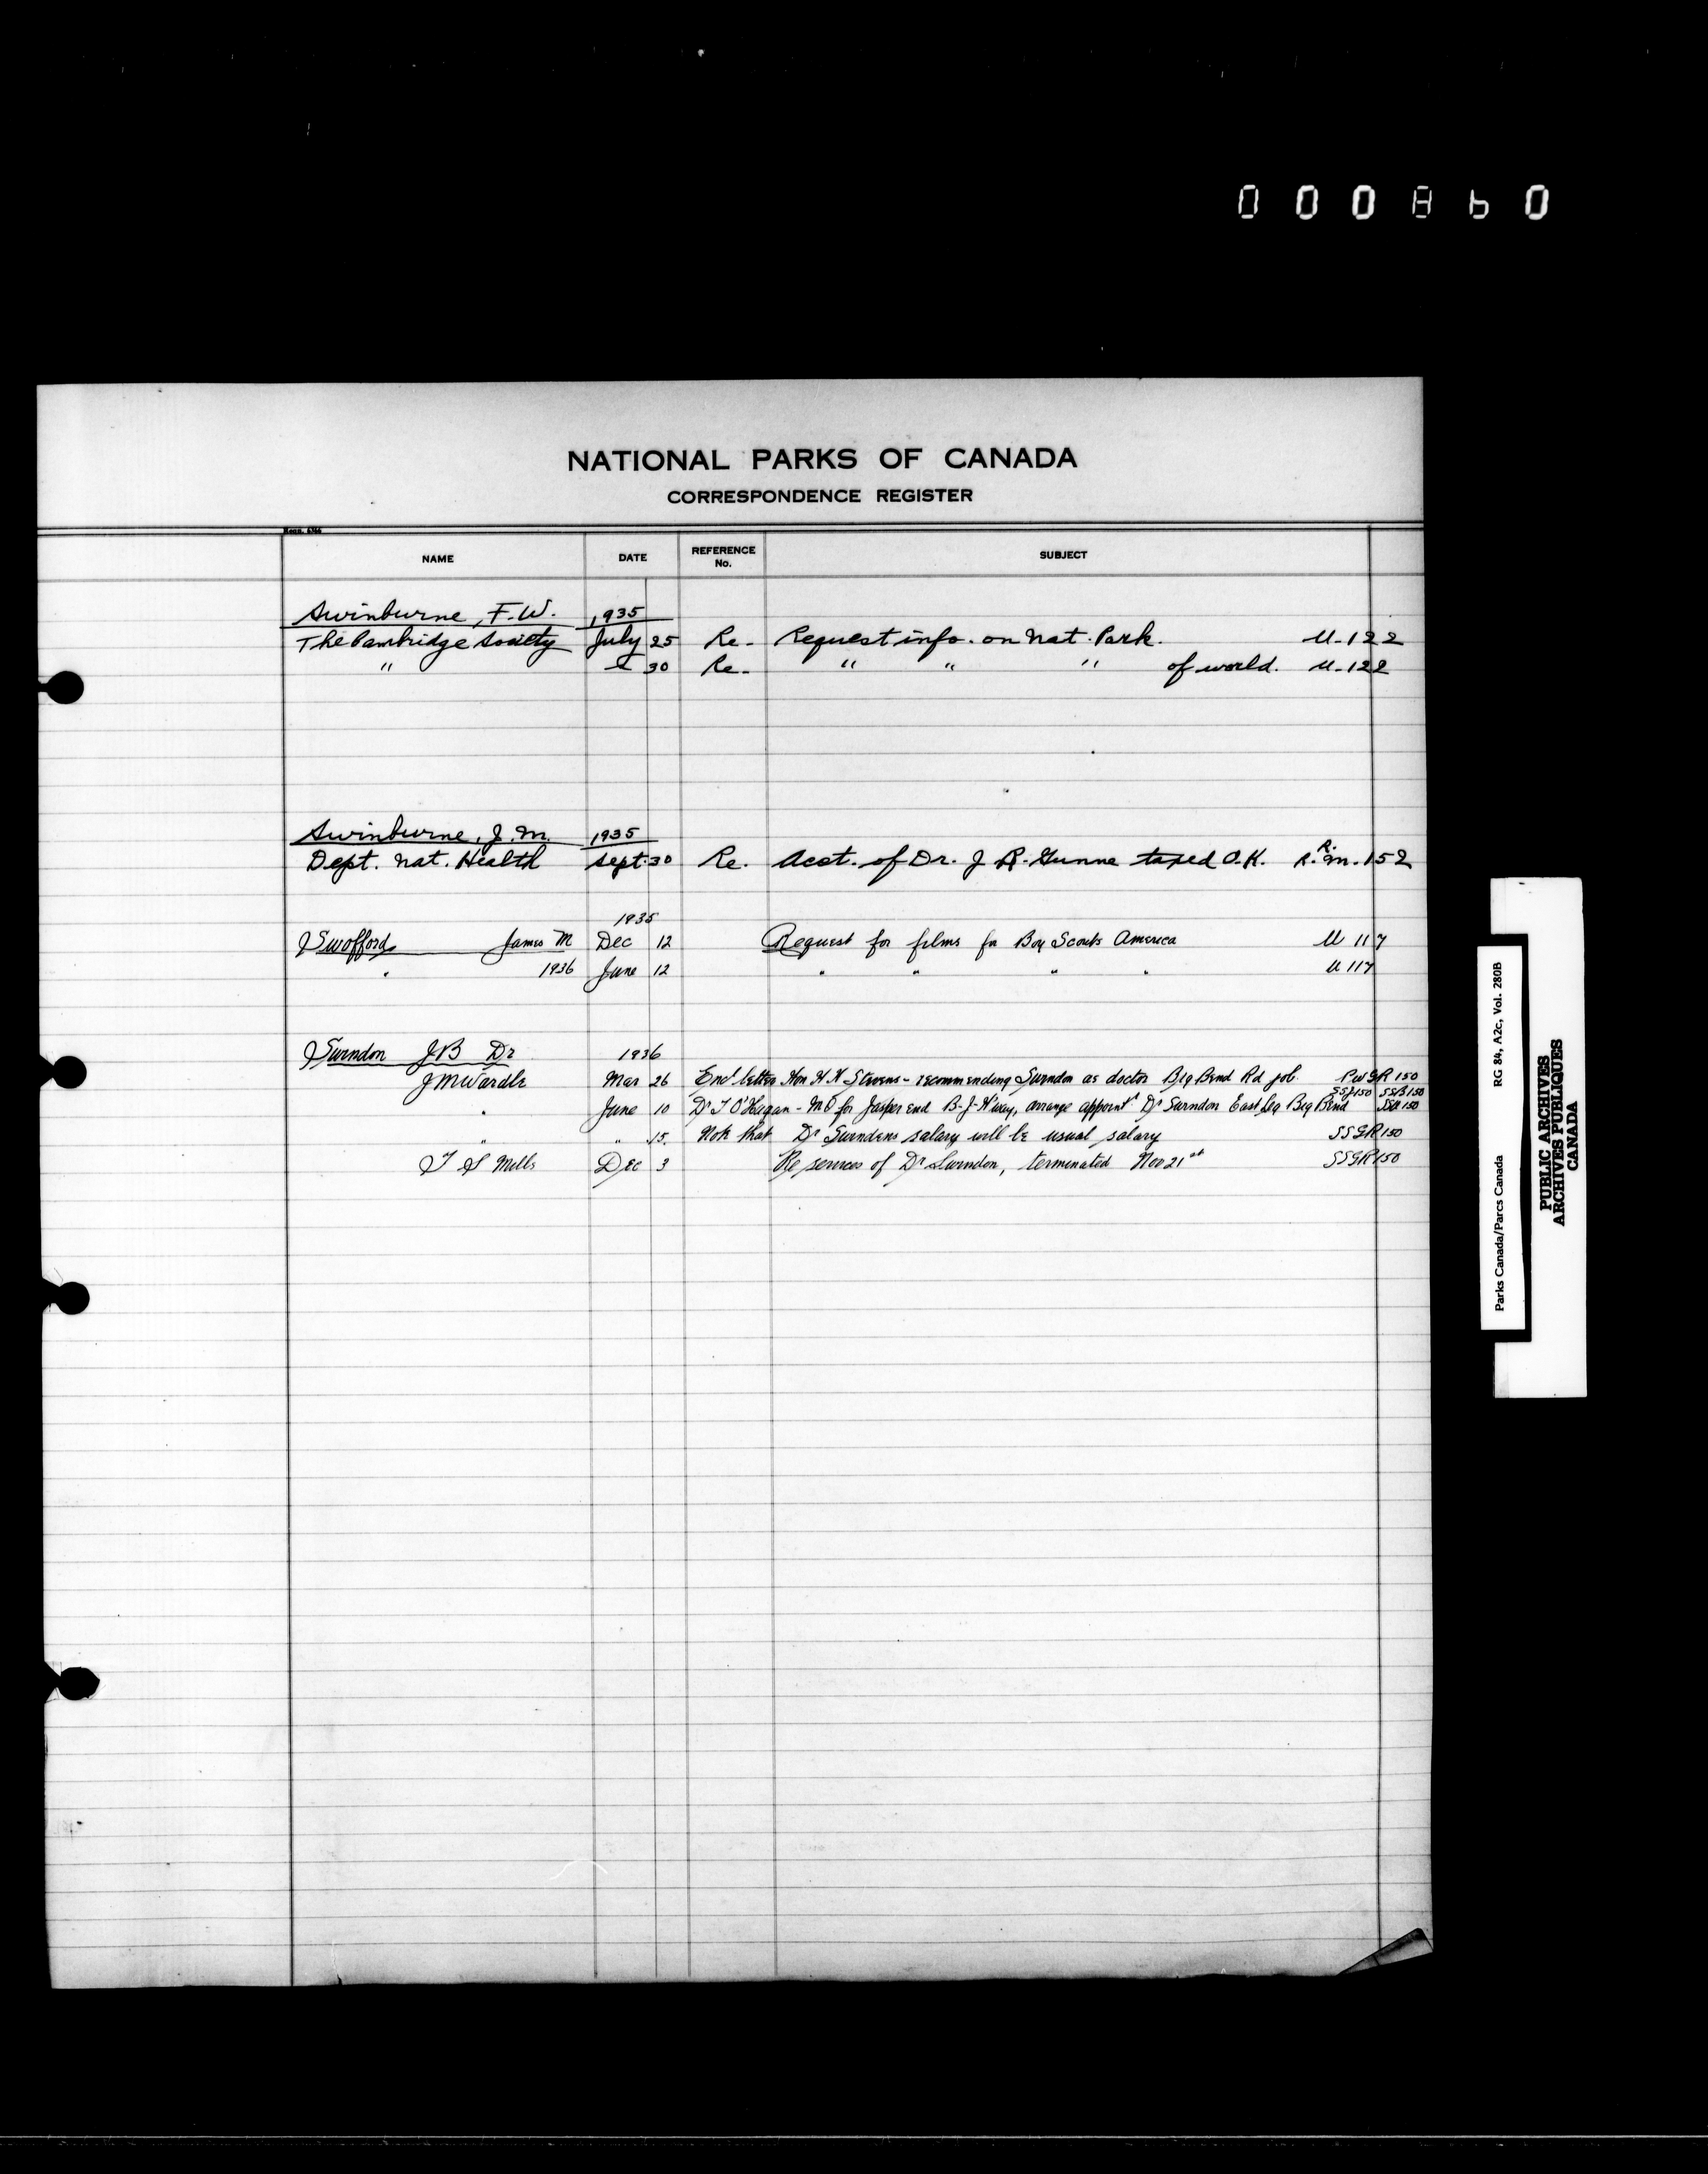 NATIONAL PARKS OF CANADA
CORRESPONDENCE REGISTER
NAME DATE REFERENCE No. SUBJECT
Swinburne, F.W. 1935
The Cambridge Society July 25 Re- Request info. on Nat. Park. U-122
" " 30 Re- " " " of world. U-122
Swinburne, J.M. 1935
Dept. Nat. Health Sept. 30 Re. Acct. of Dr. J R. Gunne taxed O.K. R.R.M. 152
1935
Swofford James M Dec 12 Request for films for Boy Scouts America U 117
" 1936 June 12 " " " " U 117
Swndon J B Dr 1936
J M Wardle Mar 26 Encl letter Hon H H Stevens - recommending Swndon as doctor Big Bend Rd job. PWGR 150
" June 10 Dr T O'Hagan - M O for Jasper end B-J-H'way, arrange appoint Dr Swndon East Leg Big Bend SSJ 150 SSB 150
" " 15. Note that Dr Swndens salary will be usual salary SSGR 150
T S Mills Dec 3 Re services of Dr Swndon, terminated Nov 21st SSGR 150
Parks Canada/Parcs Canada RG 84, A2c, Vol. 280B
PUBLIC ARCHIVES
ARCHIVES PUBLIQUES
CANADA